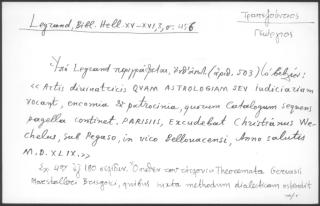 Legrand, Bibl. Hell. XV-XVI, 3, σ. 456
Τραπεζούντιος
Γεώργιος
Ὑπὸ Legrand περιγράφεται, (ἀριθ. 503) ὁ
« Artis divinatricis QVAM ASTROLOGIAM SEV iudiciariam
vocant, encomia & patrocinia, quorum Catalogum sequens
pagella continet. PARISIIS, Excudebat Christianus We-
chelus, sub Pegaso, in vico Bellovacensi, Anno salutis
M.D.XLIX. »
Εἰς 4ον ἐξ 180 σελίδων. Theoremata Gervasii
Marstalleri Brisgoici, quibus iuxta methodum dialecticam ostendit